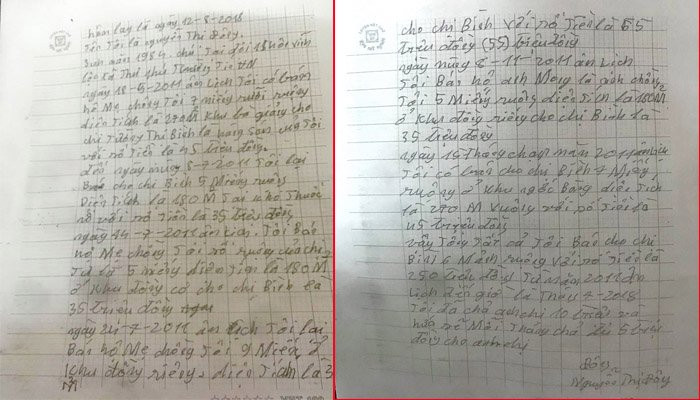 hôm lay là ngày 12-8-2018
Tên Tôi là nguyễn Thị Đông.
Sinh năm 1984. chú Tại đội
ngày 18-6-2011 âm Lịch Tôi có bán
hộ Mẹ chồng Tôi 7 miếng ruộng
diên Tích là 270M khu ba giằng cho
chị Tường Thị Bích là
với số Tiền là 45 triệu đồng.
đến ngày mùng 8-7-2011 Tôi lại
cho chị Bích 5 Miếng ruộng
Diên Tích là 180 M Tại khu
với số Tiền là 35 triệu đồng
ngày 14-7-2011 âm Lịch. Tôi Bán
hộ Mẹ chồng Tôi số ruộng của chị
Tư là 5 miếng diên Tích là 180M
ở Khu đồng cờ cho chị Bích là
35 triệu đồng
ngày 24-7-2011 âm Lịch Tôi lại
Bán hộ Mẹ chồng Tôi 9 Miếng ở
Khu đồng riêng, diên Tích là 3
M
cho chị Bích với số Tiền là 55
triệu đồng (55) triệu đồng
ngày mùng 8-11-2011 âm Lịch
Tôi Bán hộ anh Mong là anh chồng
Tôi 5 Miếng ruộng diên Tích là 180M
ở Khu đồng riêng cho chị Bích là
35 triệu đồng
ngày 15 Tháng chạp năm 2011 âm Lịch
Tôi có bán cho chị Bích 7 Miếng
ruộng ở khu ngốc Bông diên Tích
là 270 M Vuông với số Tiền là
45 triệu đồng
vậy Tổng Tất cả Tôi Bán cho chị
Bích 6 Mảnh ruộng với số Tiền là
250 triệu đồng Từ năm 2011 âm
Lịch đến giờ là Tháng 7-2018
Tôi đã chả anh chị 10 triệu và
hứa sẽ Mỗi Tháng chả đủ 5 triệu
đồng cho anh chị
Đông
Nguyễn Thị Đông